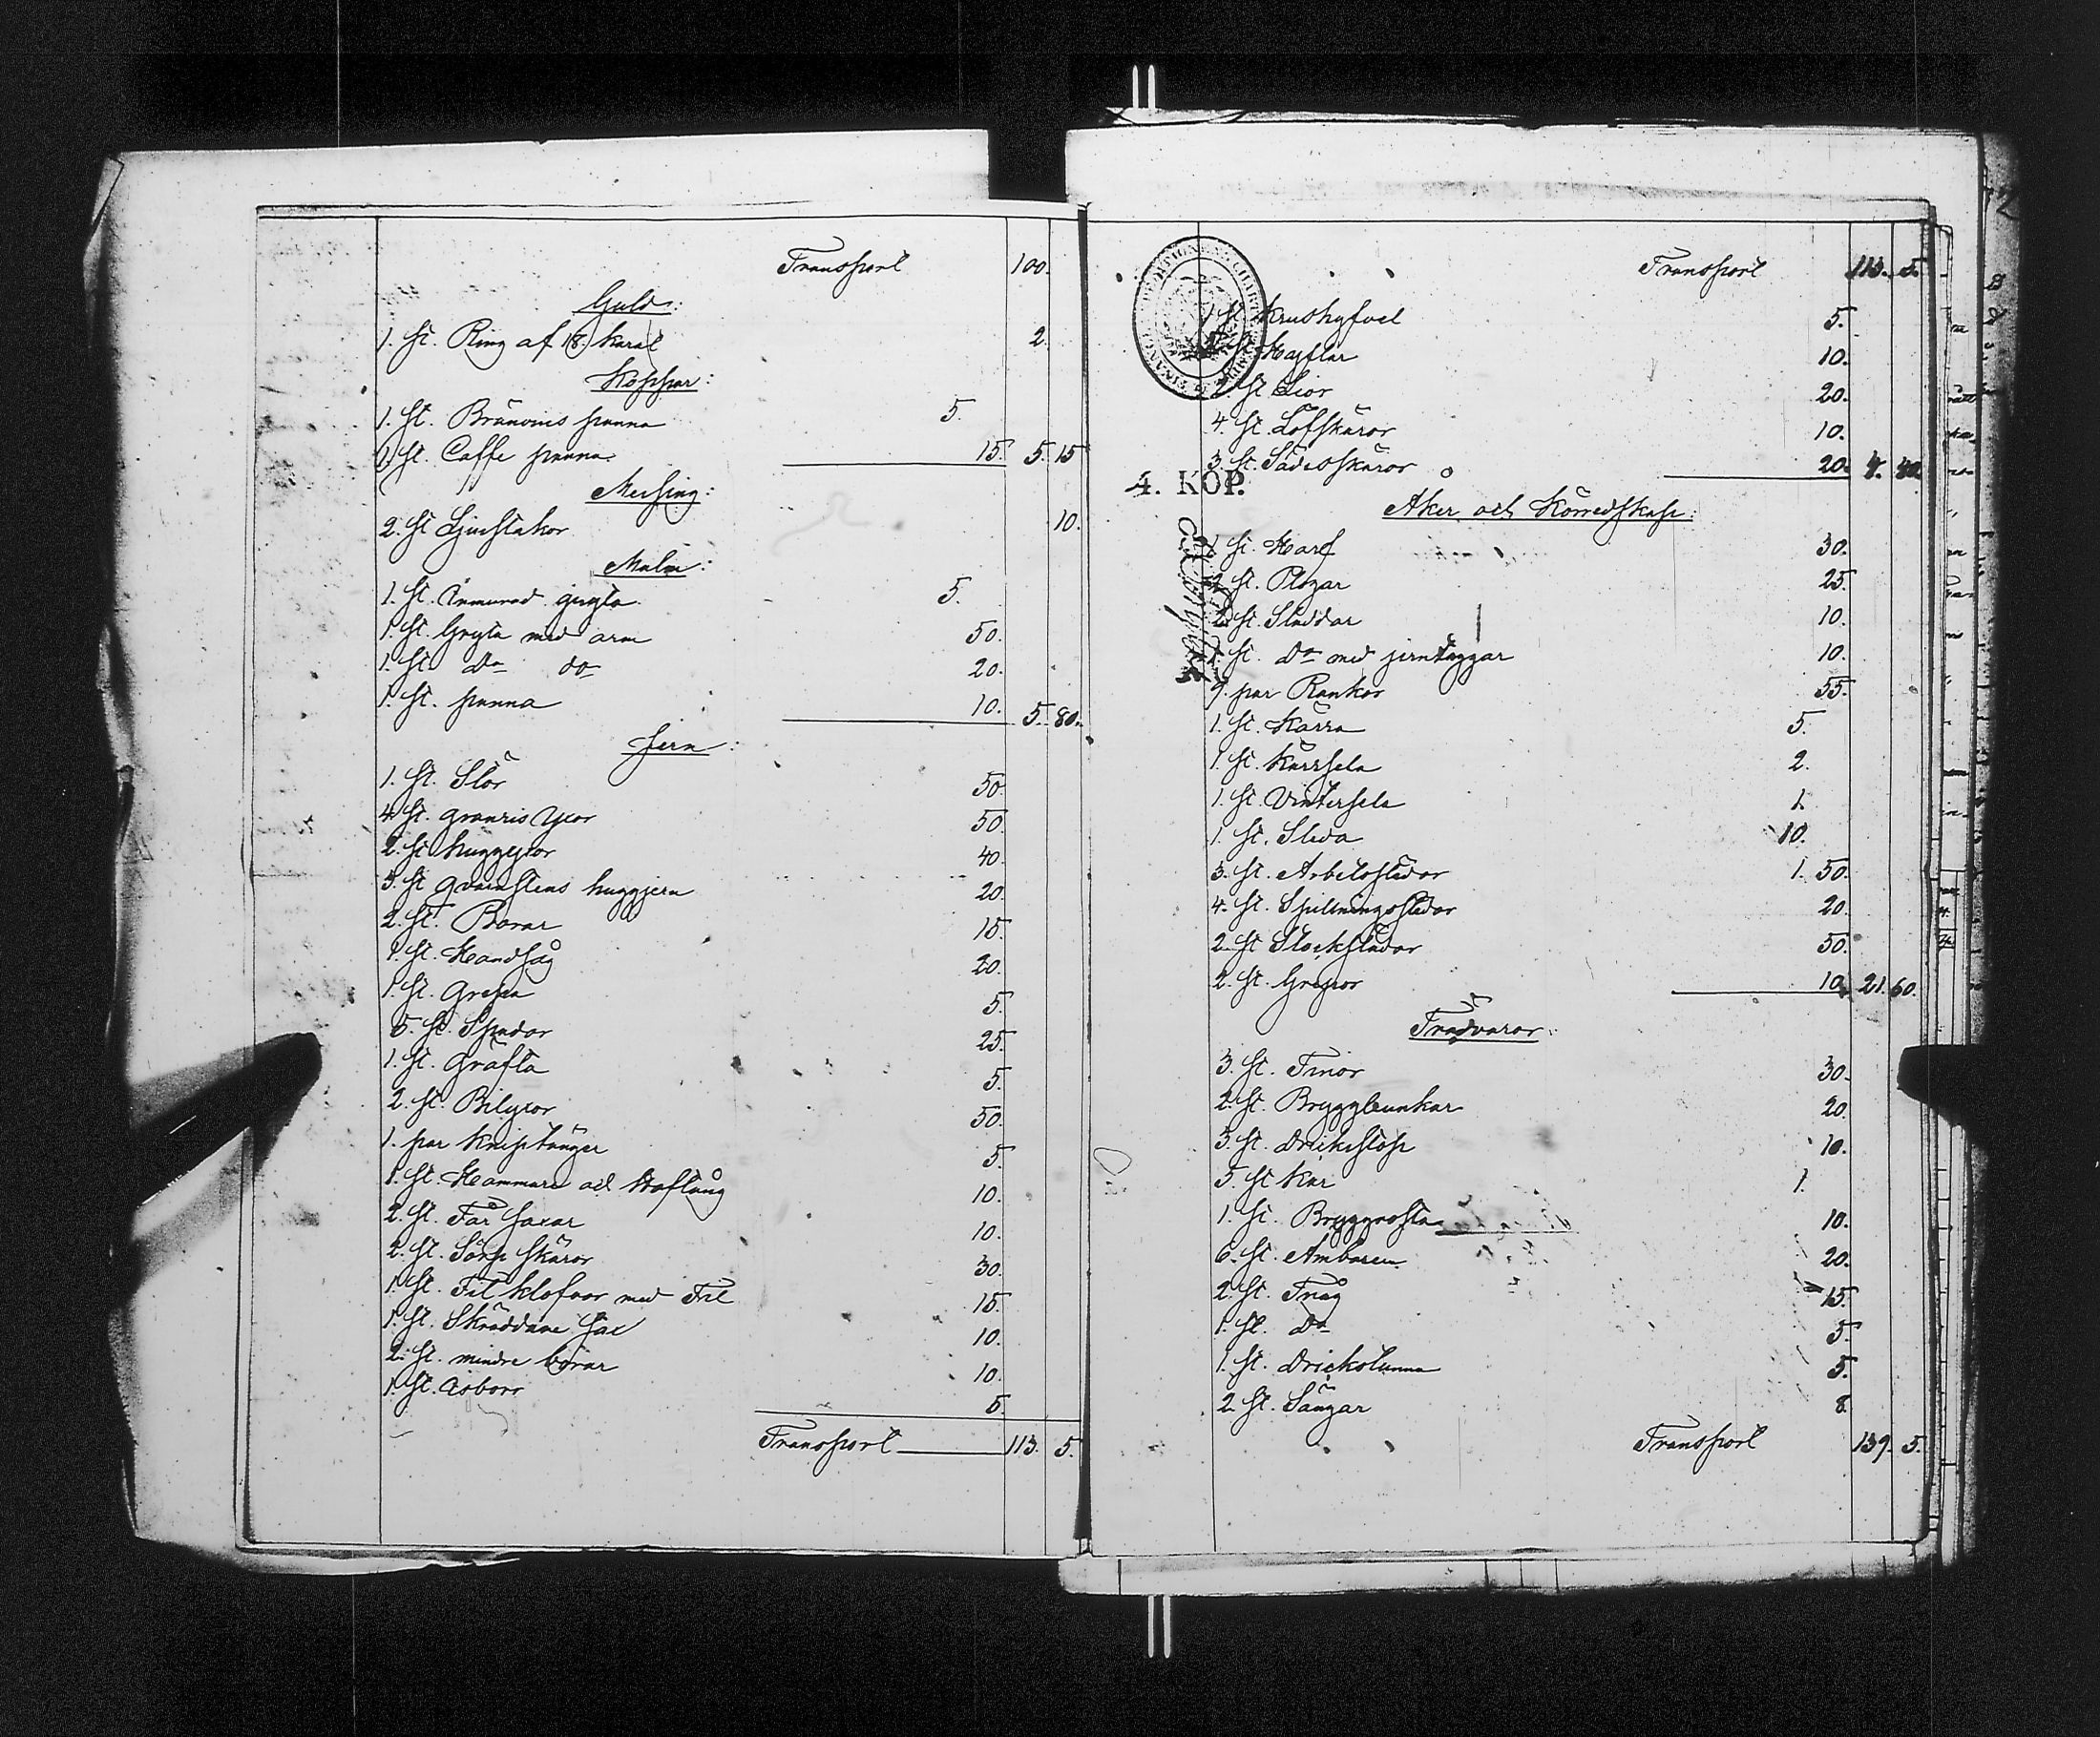 Transport 100.
Guld:
1. St. Ring af 18 karat 2.
Koppar:
1. St. Bränvins panna 5.
1. St. Caffe panna 15. 5. 15
Messing:
2. St Ljusstakor 10.
Malm:
1. St. Inmurad gryta 5.
1. St. Gryta med arm 50.
1. St do do 20.
1. St. panna 10. 5. 80.
Jern:
1. St. Stör 50.
4. St. granris yxor 50.
2. St huggyxor 40.
3. St qvarnstens huggjern 20.
2. St. Borar 15.
1. St. Handsåg 20.
1. St. Grepa 5.
5. St. Spadar 25.
1. St. Gräfta 5.
2. St. Bilyxor 50.
1. par Kniptänger 5.
1. St. Hammare och Hoftång 10.
2. St. Får saxar 10.
2. St. Sörp skäror 30.
1. St. Fil klofvar med Fil 15.
1. St. Skräddare sax 10.
2. St. mindre borar 10.
1. St. Isborr 5.
Transport 113. 5.
Transport 113. 5.
1 St Krushyfvel 5.
St. Hyflar 10.
2. St Lior 20.
4. St. Löfskäror 10.
3. St. Sädesskäror 20. 4. 40
4. KOP.
Åker och Körredskap:
1 St. Harf 30.
2 St. Plogar 25.
2. St. Sladdar 10.
1. St. do med jerntaggar 10.
9. par Rankor 55.
1. St. Kärra 5.
1. St. Kärrsela 2.
1. St. Vintersela 1.
1. St. Släda 10.
3. St. Arbetsslädor 1. 50.
4. St. Spillningsslädor 20.
2. St Stockslädor 50.
2. St. Grepor 10. 21. 60.
Trädvaror:
3. St. Tinor 30.
2. St. Bryggbunkar 20.
3. St. Dricksstop 10.
5. St Kar 1.
1. St. Bryggrosta 10.
6. St. Ambaren 20.
2. St. Tråg 15.
1. St. Do 5.
1. St. Drickstunna 5.
2. St. Sängar 8.
Transport 139. 5.